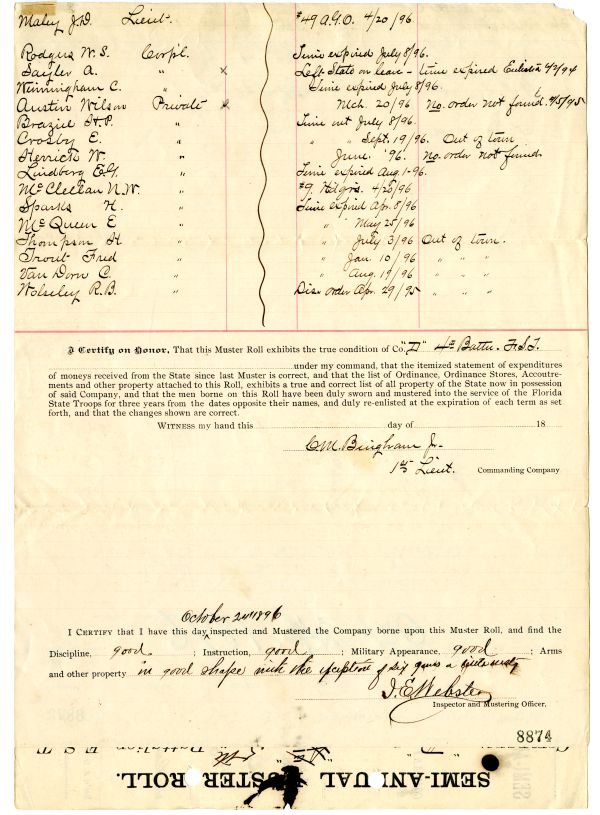 Maley J.D. Lieut. #49 A.G.O. 4/20/96
Rodgers W.S. Corp'l. Time expired July 8/96.
Saylor A. " x Left State on leave - time expired 4/2/94
Winningham C. " Time expired July 8/96.
Austin Wilson Private x Mch. 20/96 No. order not found. 9/5/95
Braziel H.P. " Time out July 8/96.
Crosby E. " " " Sept. 19/96. Out of town
Herrick W. " June '96. No. order not found.
Lindberg E.G. " Time expired Aug. 1-96.
McClellan N.W. " #9. Hdqrs. 4/25/96
Sparks H. " Time expired Apr. 8/96
McQueen E " " " May 25/96
Thompson H. " " July 3/96 Out of town.
Trout Fred " " Jan. 10/96 " " "
Van Dorn C. " " Aug. 19/96 " " "
Wolseley R.B. " Dis. order Apr. 29/95 " " "
I Certify on Honor, That this Muster Roll exhibits the true condition of Co. "D" 4th Battn. F.S.T.
under my command, that the itemized statement of expenditures
of moneys received from the State since last Muster is correct, and that the list of Ordinance, Ordinance Stores, Accoutre-
ments and other property attached to this Roll, exhibits a true and correct list of all property of the State now in possession
of said Company, and that the men borne on this Roll have been duly sworn and mustered into the service of the Florida
State Troops for three years from the dates opposite their names, and duly re-enlisted at the expiration of each term as set
forth, and that the changes shown are correct.
WITNESS my hand this day of 18
C.M. Bingham Jr.
1st Lieut. Commanding Company
October 24th 1896
I CERTIFY that I have this day inspected and Mustered the Company borne upon this Muster Roll, and find the
Discipline, good ; Instruction, good ; Military Appearance, good ; Arms
and other property in good shape with the exception of six guns a little rusty
J.E. Webster
Inspector and Mustering Officer.
8874
SEMI-ANNUAL MUSTER ROLL.